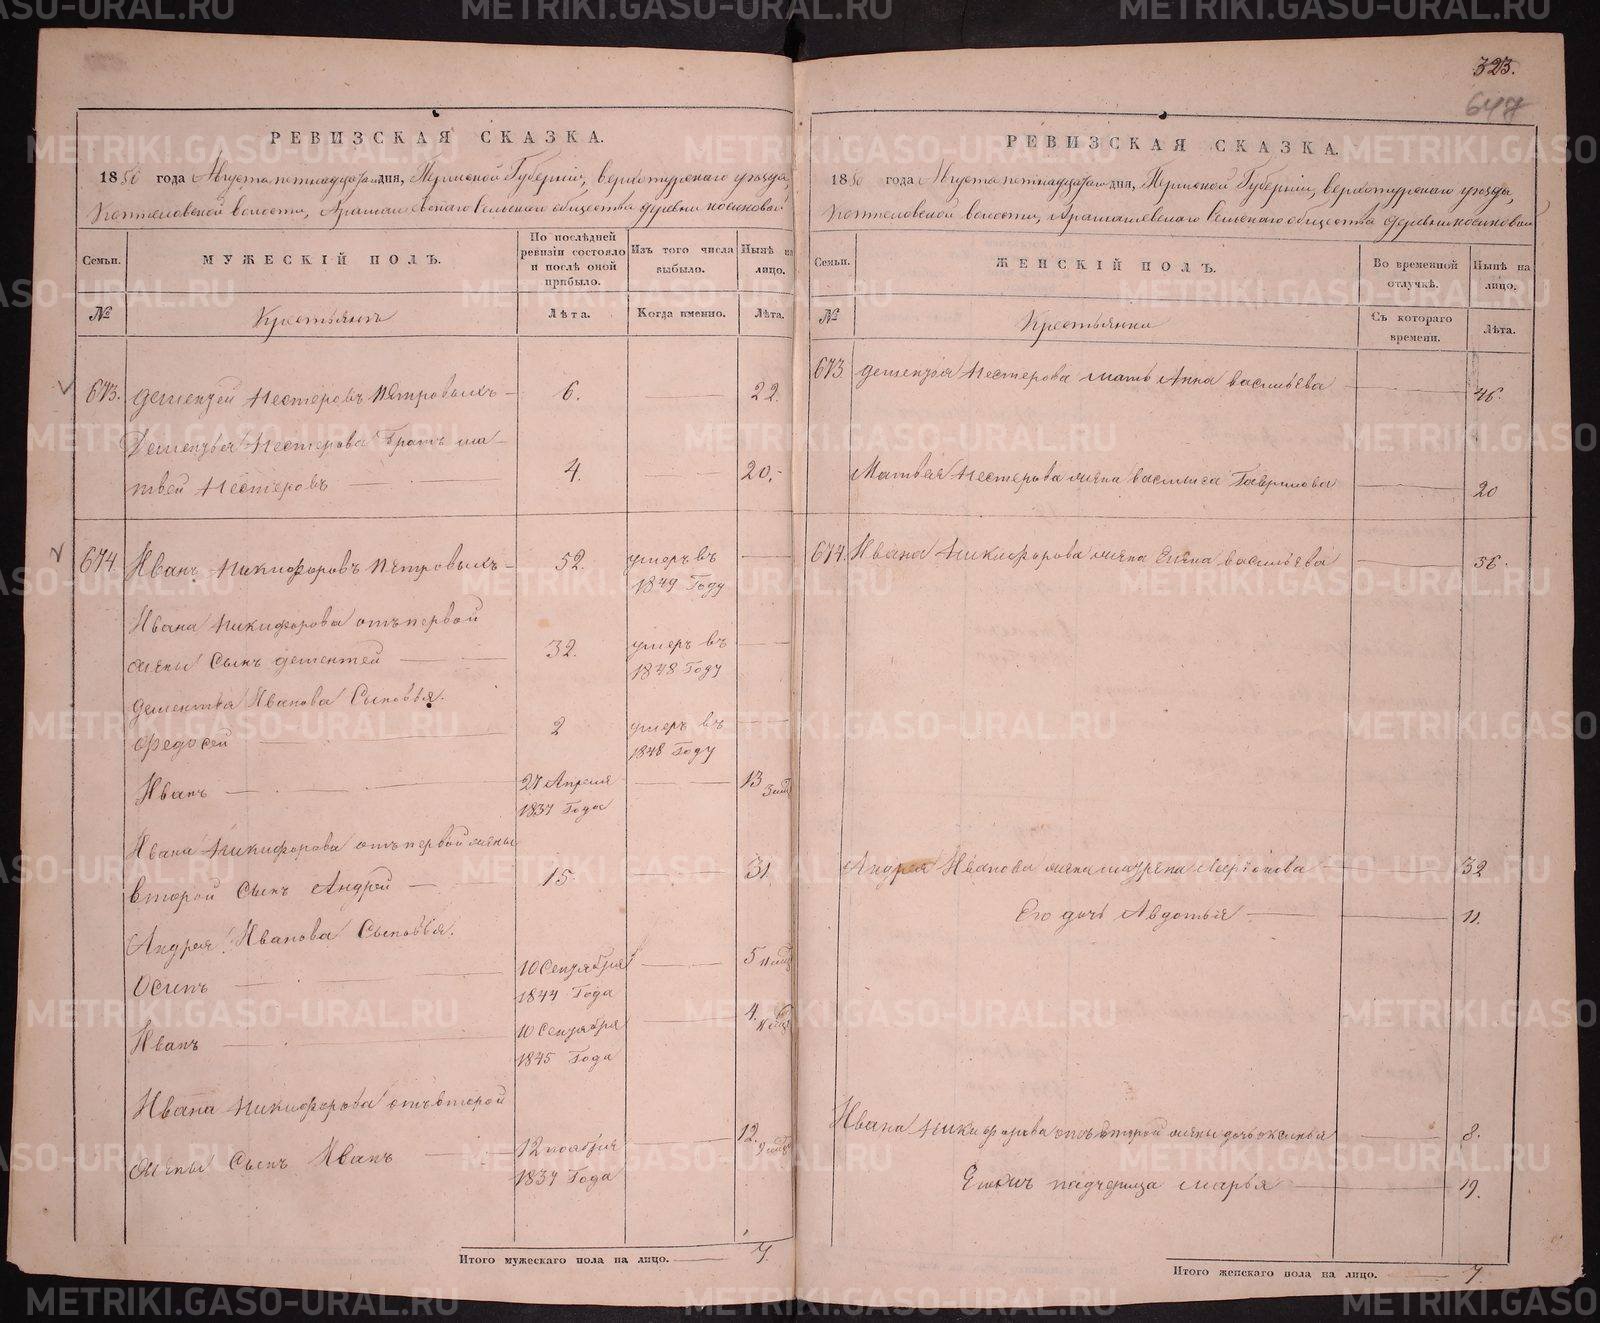 323.
647
РЕВИЗСКАЯ СКАЗКА.
1850 года Августа пятнадцатаго дня, Пермской Губерніи, верхотурскаго уѣзда,
Коптеловской волости, Арамашевскаго Сельскаго общества деревни косиковой
Семьи.
МУЖЕСКІЙ ПОЛЪ.
По послѣдней ревизіи состояло и послѣ оной прибыло.
Изъ того числа выбыло.
Нынѣ на лицо.
№
Крестьянъ
Лѣта.
Когда именно.
Лѣта.
673. Дементей Нестеровъ Пѣтровыхъ 6. 22.
Дементья Нестерова Братъ Ма-
твей Нестеровъ 4. 20.
674. Иванъ Никифоровъ Пѣтровыхъ 52. умеръ въ
1849 Году
Ивана Никифорова отъ первой
жены Сынъ дементей 32. умеръ въ
1848 Году
дементья Иванова Сыновья.
Федосей 2 умеръ въ
1848 Году
Иванъ 27 Апреля 13
1837 Года
Ивана Никифорова отъ первой жены
второй Сынъ Андрей 15. 31.
Андрея Иванова Сыновья.
Осипъ 10 Сентября 5
1844 Года
Иванъ 10 Сентября 4.
1845 Года
Ивана Никифорова отъ второй
жены Сынъ Иванъ 12 ноября 12.
1837 Года
Итого мужескаго пола на лицо. 7.
РЕВИЗСКАЯ СКАЗКА.
1850 года Августа пятнадцатаго дня, Пермской Губерніи, верхотурскаго уѣзда,
Коптеловской волости, Арамашевскаго Сельскаго общества деревни косиковой
Семьи.
ЖЕНСКІЙ ПОЛЪ.
Во временной отлучкѣ.
Нынѣ на лицо.
№
Крестьянки
Съ котораго времени.
Лѣта.
673 дементья Нестерова мать Анна васильева 46.
Матвея Нестерова жена василиса Гаврилова 20
674. Ивана Никифорова жена Елена васильева 56.
Андрея Иванова жена маурена 32
Его дочь Авдотья 11.
Ивана Никифорова отъ второй жены дочь оксинья 8.
падчерица марья 19.
Итого женскаго пола на лицо. 7.
METRIKI.GASO-URAL.RU